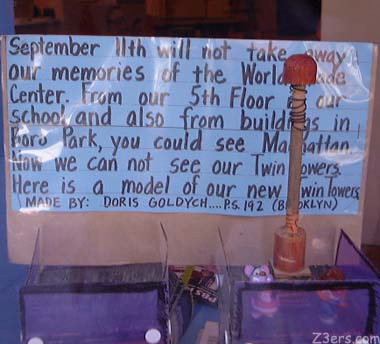 September 11th will not take away
our memories of the World Trade
Center. From our 5th Floor our
school and also from buildings in
Boro Park, you could see Manhattan.
Now we can not see our Twin Towers.
Here is a model of our new Twin Towers
(MADE BY: DORIS GOLDYCH....P.S. 192 (BROOKLYN)
Z3ers.com